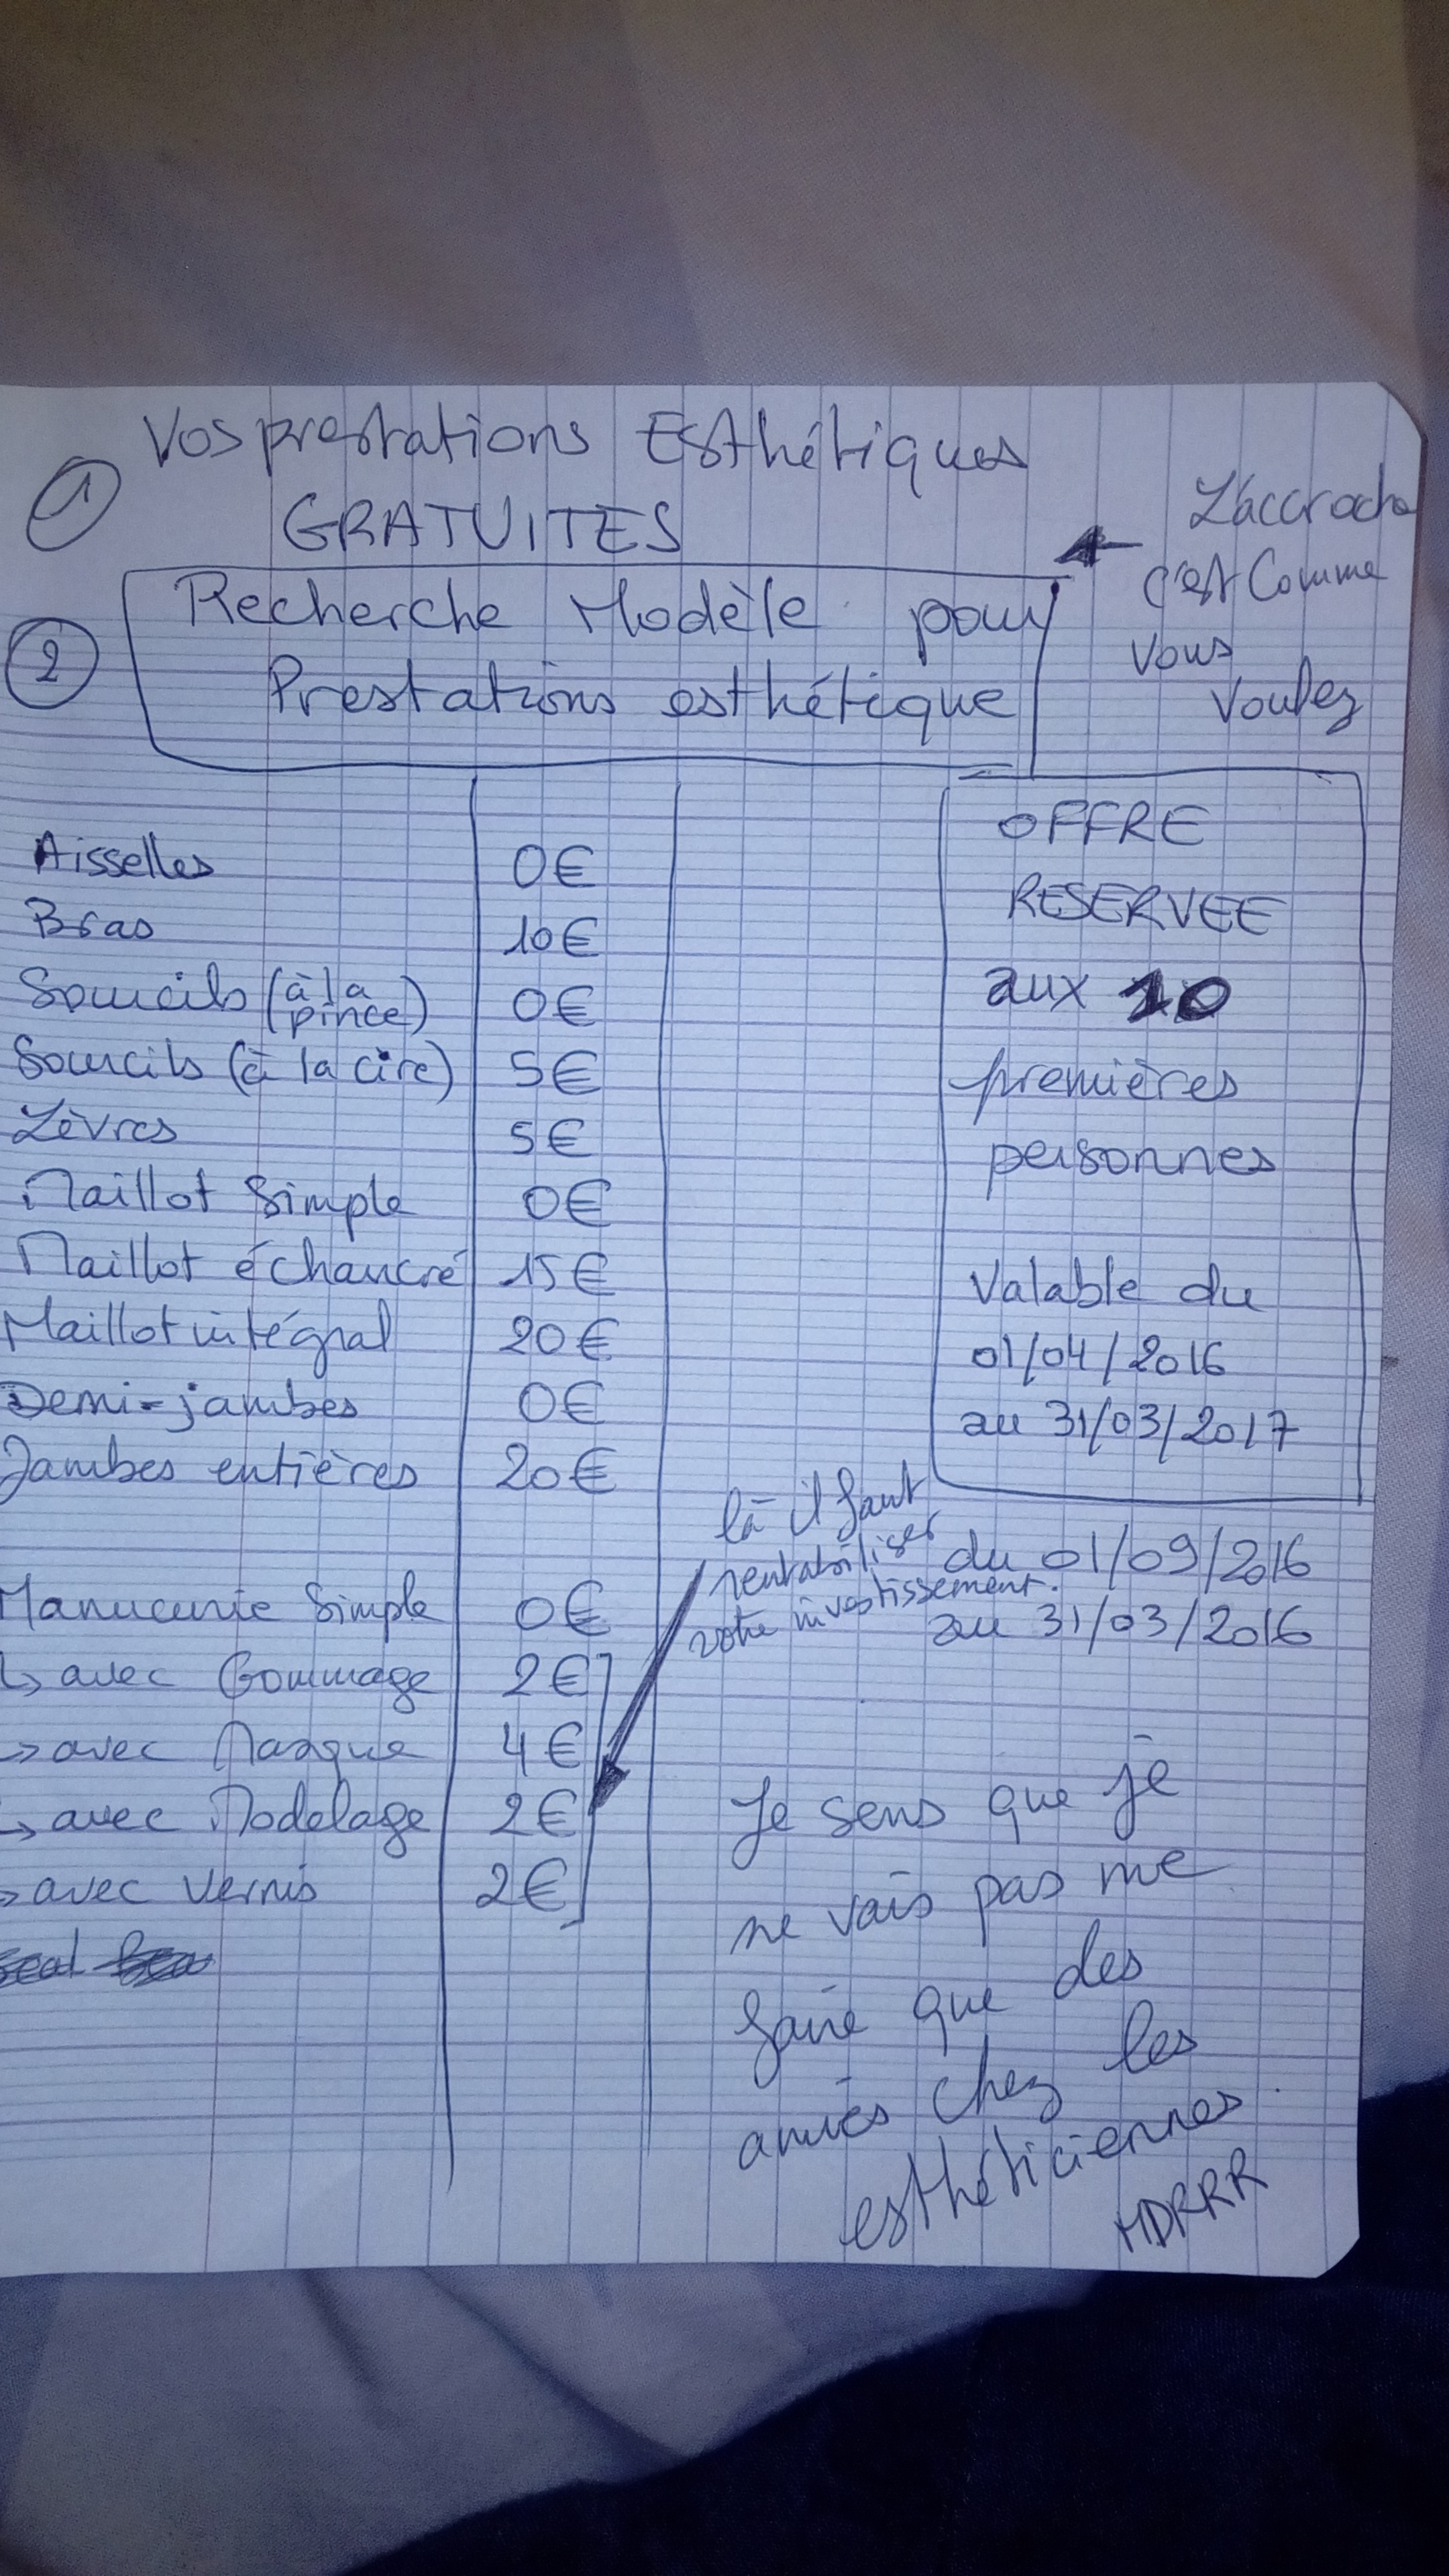 ① Vos prestations Esthétiques
GRATUITES
② Recherche Modèle pour
Prestations esthétique
L'accroche
c'est Comme
vous
voulez
Aisselles 0€
Bras 10€
Sourcils (à la pince) 0€
Sourcils (à la cire) 5€
Lèvres 5€
Maillot Simple 0€
Maillot échancré 15€
Maillot intégral 20€
Demi-jambes 0€
Jambes entières 20€
Manucurie Simple 0€
↳ avec Gommage 2€
→ avec Masque 4€
↳ avec Modelage 2€
→ avec Vernis 2€
OFFRE
RESERVEE
aux 10
premières
personnes
Valable du
01/04/2016
au 31/03/2017
là il faut
rentabiliser
votre investissement.
du 01/09/2016
au 31/03/2016
Je sens que je
ne vais pas me
faire que des
amies chez les
esthéticiennes
MDRRR